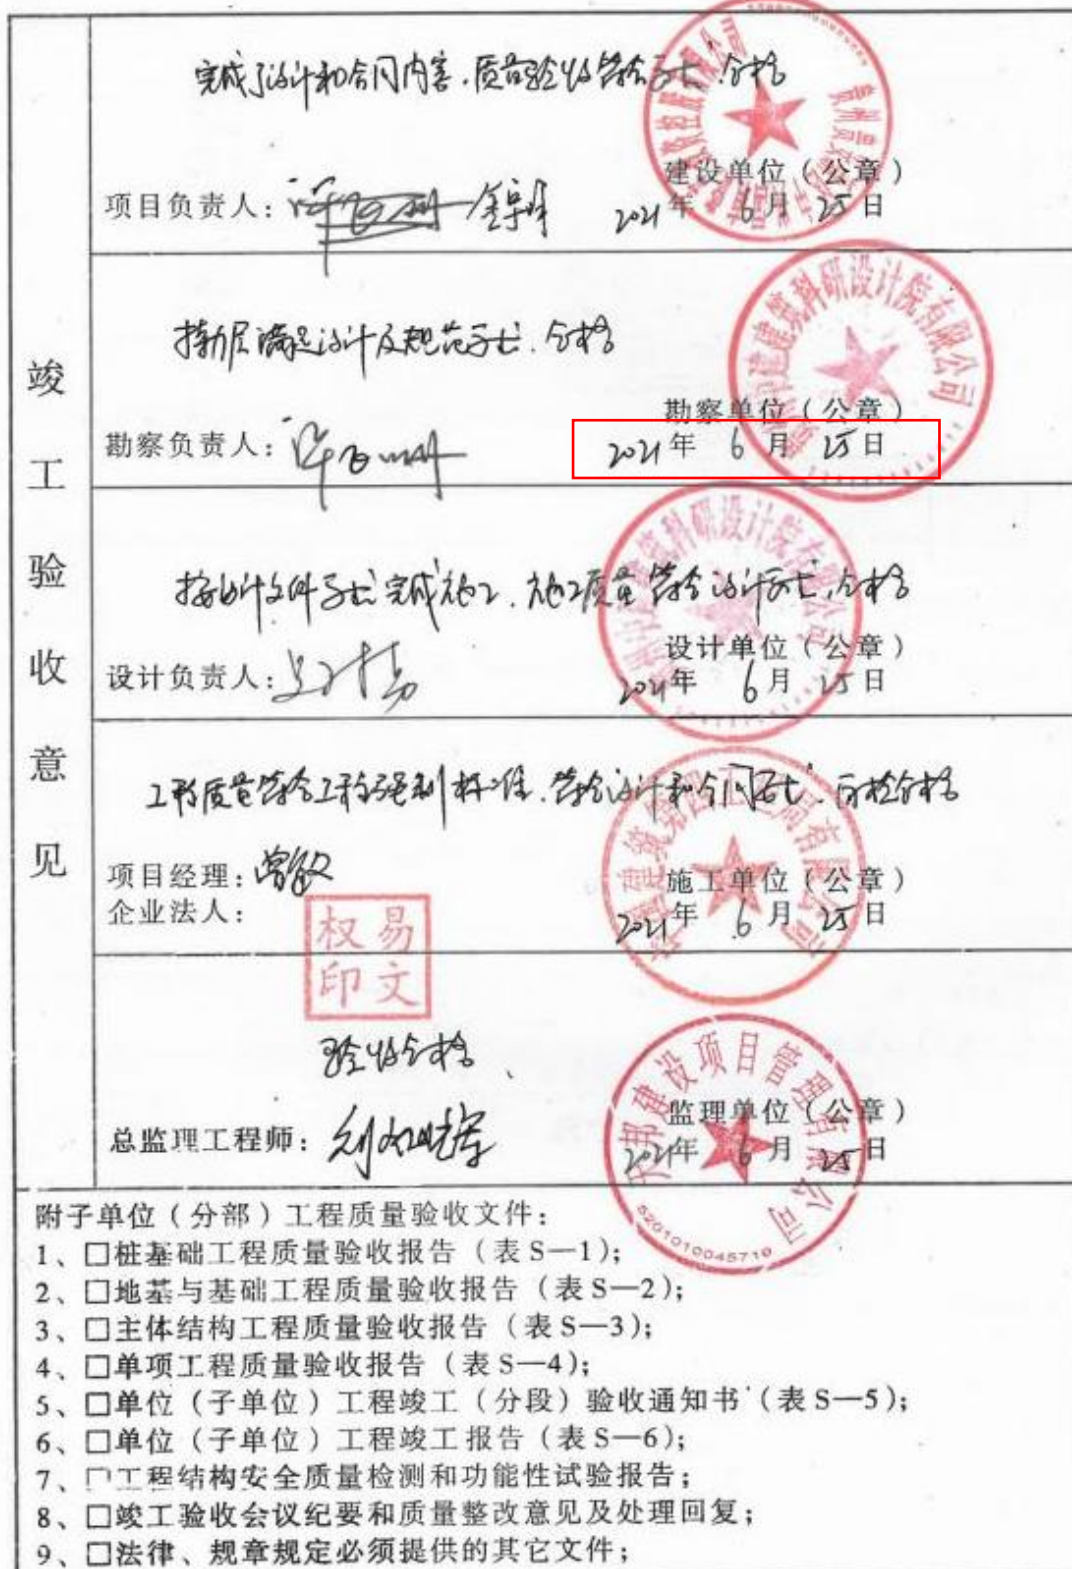 竣工验收意见
完成了设计和合同内容，质量验收符合要求，合格
建设单位（公章）
项目负责人： 2021年 6月 25日
建筑科研设计院有限公司
持力层满足设计及规范要求，合格
勘察单位（公章）
勘察负责人： 2021年 6月 25日
建筑科研设计院有限公司
按设计文件要求完成施工，施工质量符合设计要求，合格
设计单位（公章）
设计负责人： 2021年 6月 25日
工程质量符合工程强制标准，符合设计和合同要求，自检合格
建筑第四工程局有限公司
项目经理：曾毅 施工单位（公章）
企业法人： 2021年 6月 25日
易文权印
验收合格
建设项目管理有限公司
监理单位（公章）
总监理工程师： 2021年 6月 25日
5201010045719
附子单位（分部）工程质量验收文件：
1、□桩基础工程质量验收报告（表S—1）；
2、□地基与基础工程质量验收报告（表S—2）；
3、□主体结构工程质量验收报告（表S—3）；
4、□单项工程质量验收报告（表S—4）；
5、□单位（子单位）工程竣工（分段）验收通知书（表S—5）；
6、□单位（子单位）工程竣工报告（表S—6）；
7、□工程结构安全质量检测和功能性试验报告；
8、□竣工验收会议纪要和质量整改意见及处理回复；
9、□法律、规章规定必须提供的其它文件；